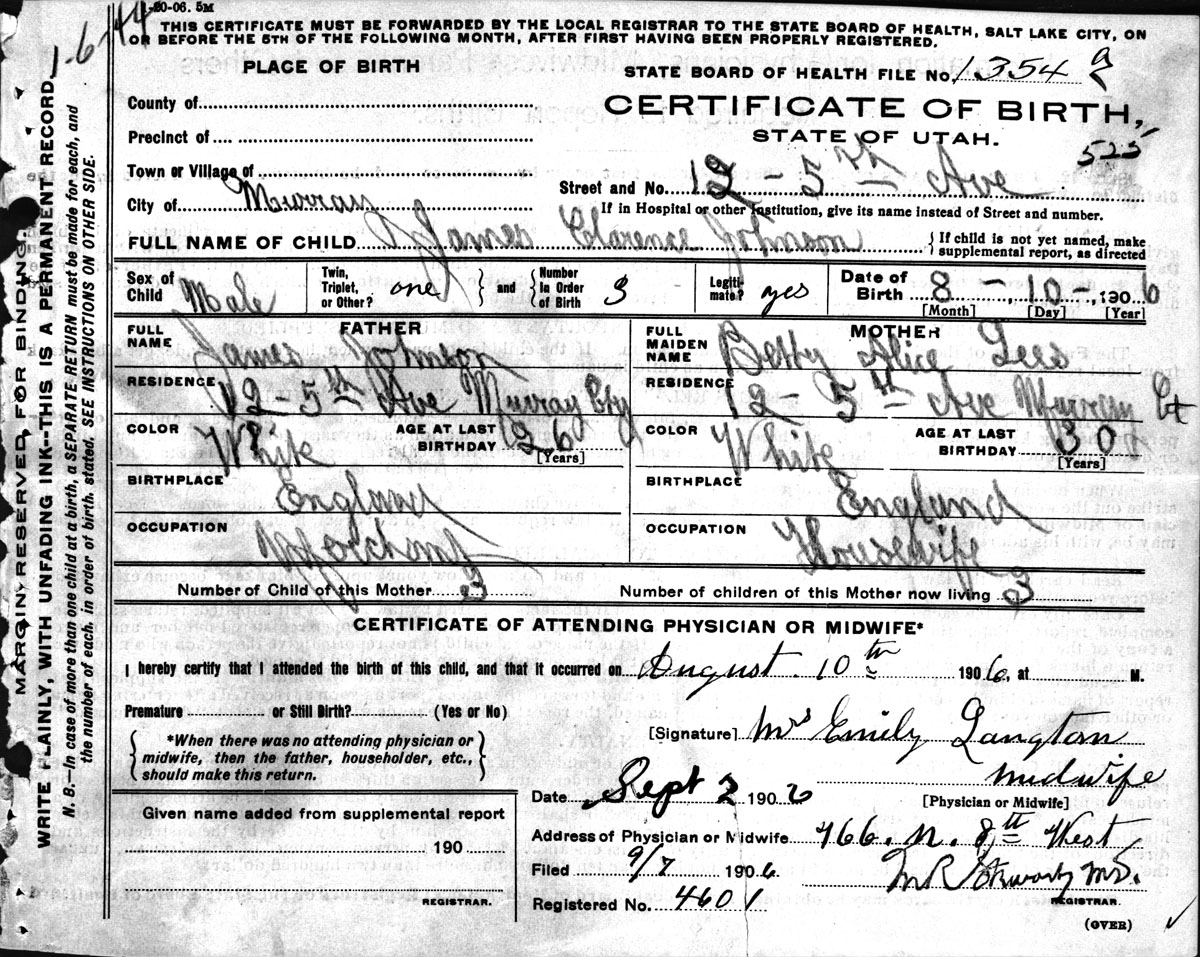 1-20-06. 5M
THIS CERTIFICATE MUST BE FORWARDED BY THE LOCAL REGISTRAR TO THE STATE BOARD OF HEALTH, SALT LAKE CITY, ON
OR BEFORE THE 5TH OF THE FOLLOWING MONTH, AFTER FIRST HAVING BEEN PROPERLY REGISTERED.
PLACE OF BIRTH
STATE BOARD OF HEALTH FILE No. 1354
County of
CERTIFICATE OF BIRTH,
Precinct of
STATE OF UTAH.
525
Town or Village of
Street and No. 12 - 5th Ave
City of Murray
If in Hospital or other Institution, give its name instead of Street and number.
FULL NAME OF CHILD James Clarence Johnson
If child is not yet named, make
supplemental report, as directed
Sex of Child Male Twin, Triplet, or Other? one and Number In Order of Birth 3 Legiti-mate? yes Date of Birth 8 - 10 - , 1906
[Month] [Day] [Year]
FATHER
FULL NAME James Johnson
RESIDENCE 12 - 5th Ave Murray Cty
COLOR White AGE AT LAST BIRTHDAY 26 [Years]
BIRTHPLACE England
OCCUPATION
MOTHER
FULL MAIDEN NAME Betty Alice Lees
RESIDENCE 12 - 5th Ave Murray
COLOR White AGE AT LAST BIRTHDAY 30 [Years]
BIRTHPLACE England
OCCUPATION Housewife
Number of Child of this Mother 3 Number of children of this Mother now living 3
CERTIFICATE OF ATTENDING PHYSICIAN OR MIDWIFE*
I hereby certify that I attended the birth of this child, and that it occurred on August 10th 1906, at M.
Premature or Still Birth? (Yes or No)
*When there was no attending physician or
midwife, then the father, householder, etc.,
should make this return.
[Signature] Mrs Emily Langton
midwife
[Physician or Midwife]
Date Sept 2 1906
Given name added from supplemental report
190
REGISTRAR.
Address of Physician or Midwife 766. N. 8th West
Filed 9/7 1906
Registered No. 4601
REGISTRAR.
(OVER)
MARGIN RESERVED FOR BINDING.
WRITE PLAINLY, WITH UNFADING INK--THIS IS A PERMANENT RECORD
N. B.—In case of more than one child at a birth, a SEPARATE RETURN must be made for each, and
the number of each, in order of birth, stated. SEE INSTRUCTIONS ON OTHER SIDE.